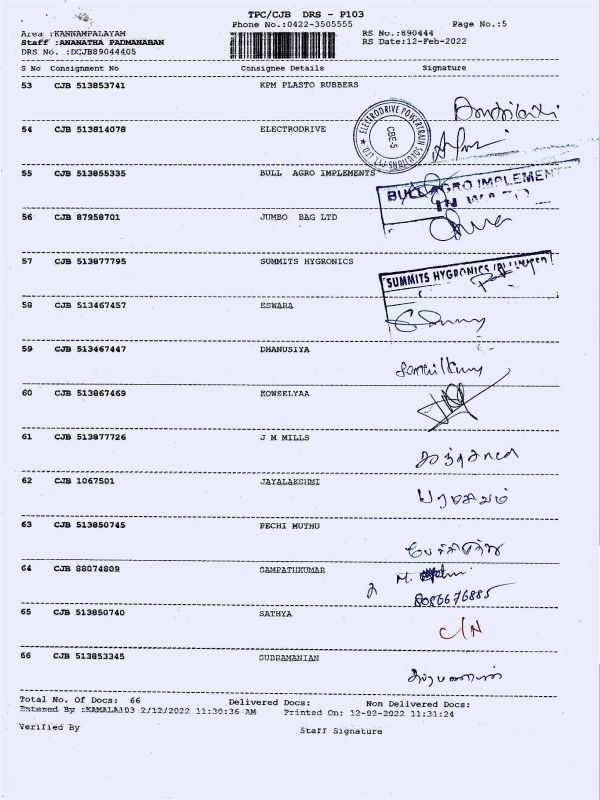 TPC/CJB DRS - P103
Phone No.:0422-3505555 Page No.:5
Area :KANNAMPALAYAM RS No.:890444
Staff :ANANATHA PADMANABAN RS Date:12-Feb-2022
DRS No. :DCJB89044405
S No Consignment No Consignee Details Signature
53 CJB 513853741 KPM PLASTO RUBBERS
54 CJB 513814078 ELECTRODRIVE
ELECTRODRIVE POWERTRAIN SOLUTIONS PVT LTD
CBE-5
55 CJB 513855335 BULL AGRO IMPLEMENTS
BULL AGRO IMPLEMEN
56 CJB 87958701 JUMBO BAG LTD
57 CJB 513877795 SUMMITS HYGRONICS
SUMMITS HYGRONICS
58 CJB 513467457 ESWARA
59 CJB 513467447 DHANUSIYA
60 CJB 513867469 KOWSELYAA
61 CJB 513877726 J M MILLS
62 CJB 1067501 JAYALAKSHMI
பரமசிவம்
63 CJB 513850745 PECHI MUTHU
பேச்சிமுத்து
64 CJB 88074809 SAMPATHKUMAR
M.
8086676885
65 CJB 513850740 SATHYA
C/N
66 CJB 513853345 SUBRAMANIAN
Total No. Of Docs: 66 Delivered Docs: Non Delivered Docs:
Entered By :KAMALA103 2/12/2022 11:30:36 AM Printed On: 12-02-2022 11:31:24
Verified By Staff Signature